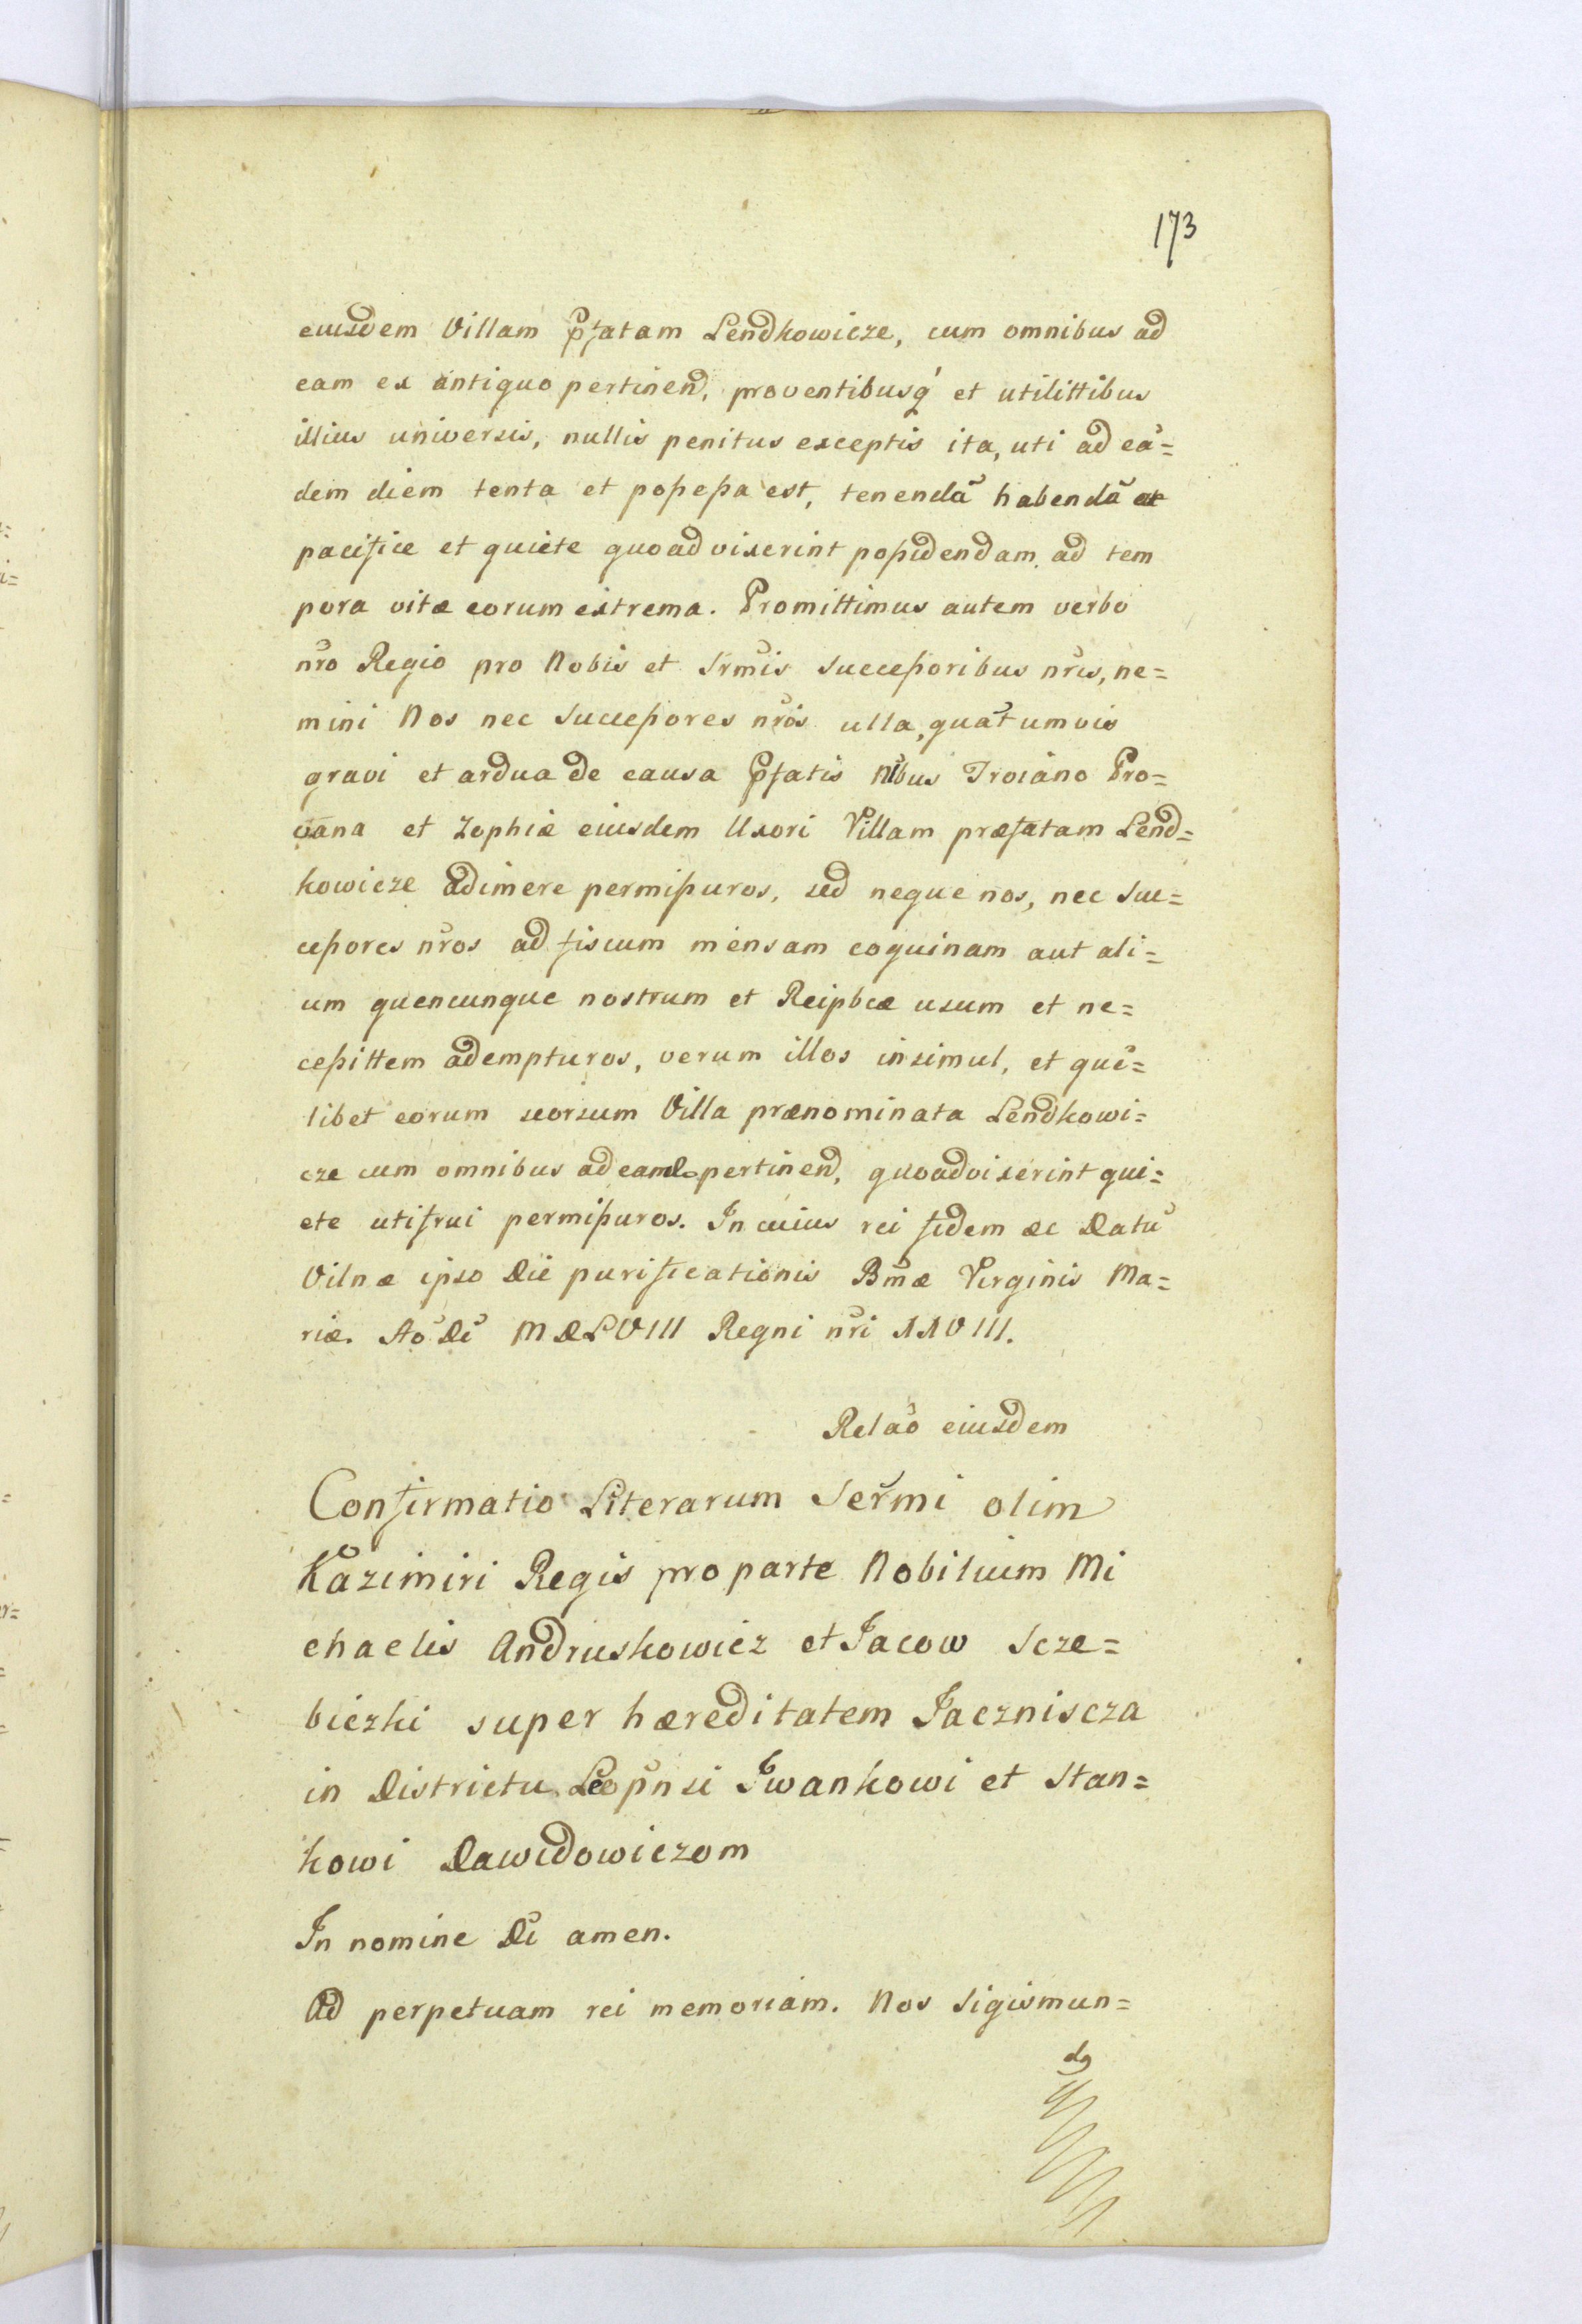 173
eiusdem Villam pfatam Lendkowicze, cum omnibus ad
eam ex antiquo pertinen̄d, proventibusq́ et utilittibus
illius universis, nullis penitus exceptis ita, uti ad eā=
dem diem tenta et possessa est, tenendā habendā ac
pacifice et quiete quoad vixerint possidendam, ad tem
pora vitæ eorum extrema. Promittimus autem verbo
nr̄o Regio pro Nobis et Srm̄is Successoribus nr̄is, ne=
mini Nos nec Successores nr̄os ulla, quāt umvis
gravi et ardua de causa pfatis Nlb̄us Troiano Pro=
vana et Zophiæ eiusdem Uxori Villam præfatam Lend=
kowicze adimere permissuros, sed neque nos, nec Suc=
cessores nr̄os ad fiscum mensam coquinam aut ali=
um quencunque nostrum et Reipbcæ usum et ne=
cessittem adempturos, verum illos insimul, et quē=
libet eorum seorsum Villa prænominata Lendkowi=
cze cum omnibus ad eam pertinen̄d, quoad vixerint qui=
ete utifrui permissuros. In cuius rei fidem æc Datū
Vilnæ ipso Die purificationis Bm̄æ Virginis Ma=
riæ. Aō Dī MDLVIII Regni nr̄i XXVIII.
Relaō eiusdem
Confirmatio Literarum Ser̄mi olim
Kazimiri Regis pro parte Nobilium Mi
chaelis Andruskowicz et Jacow Scze=
biezki super hæreditatem Jaczniscza
in Districtu Leopn̄si Iwankowi et Stan=
kowi Dawidowiczom
In nomine Dī amen.
Ad perpetuam rei memoriam. Nos Sigismun=
dg